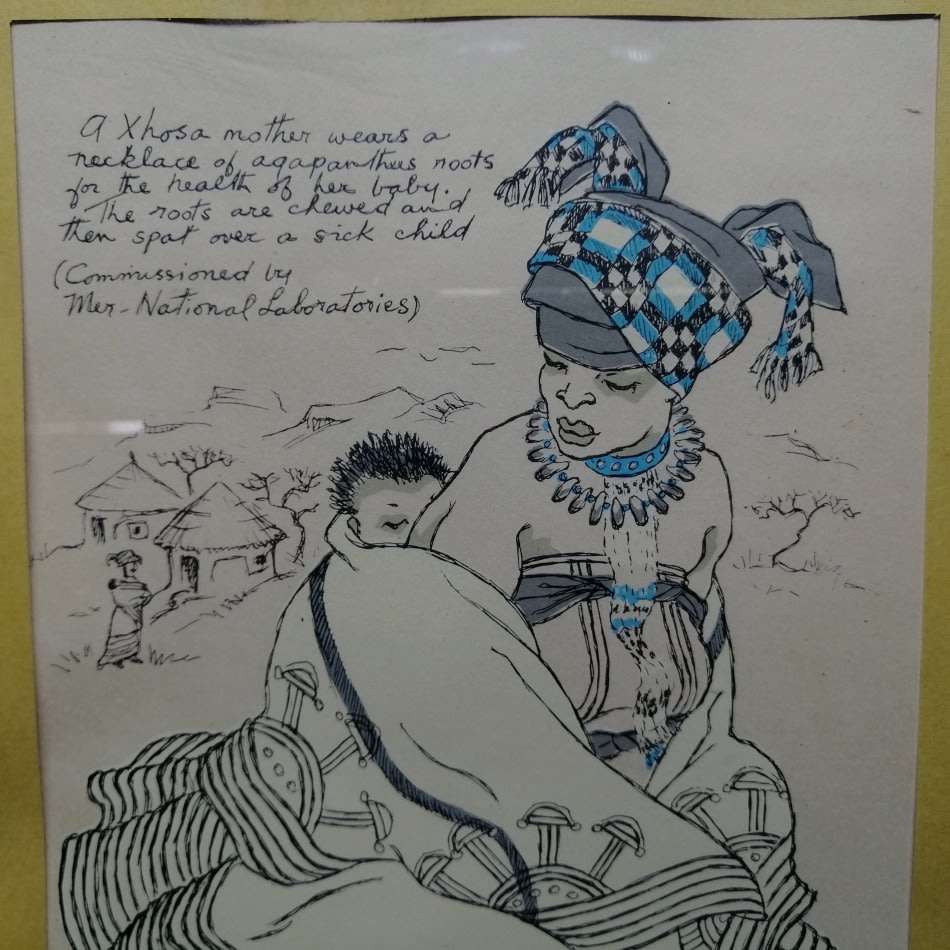 A Xhosa mother wears a
necklace of agapanthus roots
for the health of her baby.
The roots are chewed and
then spat over a sick child
(Commissioned by
Mer-National Laboratories)